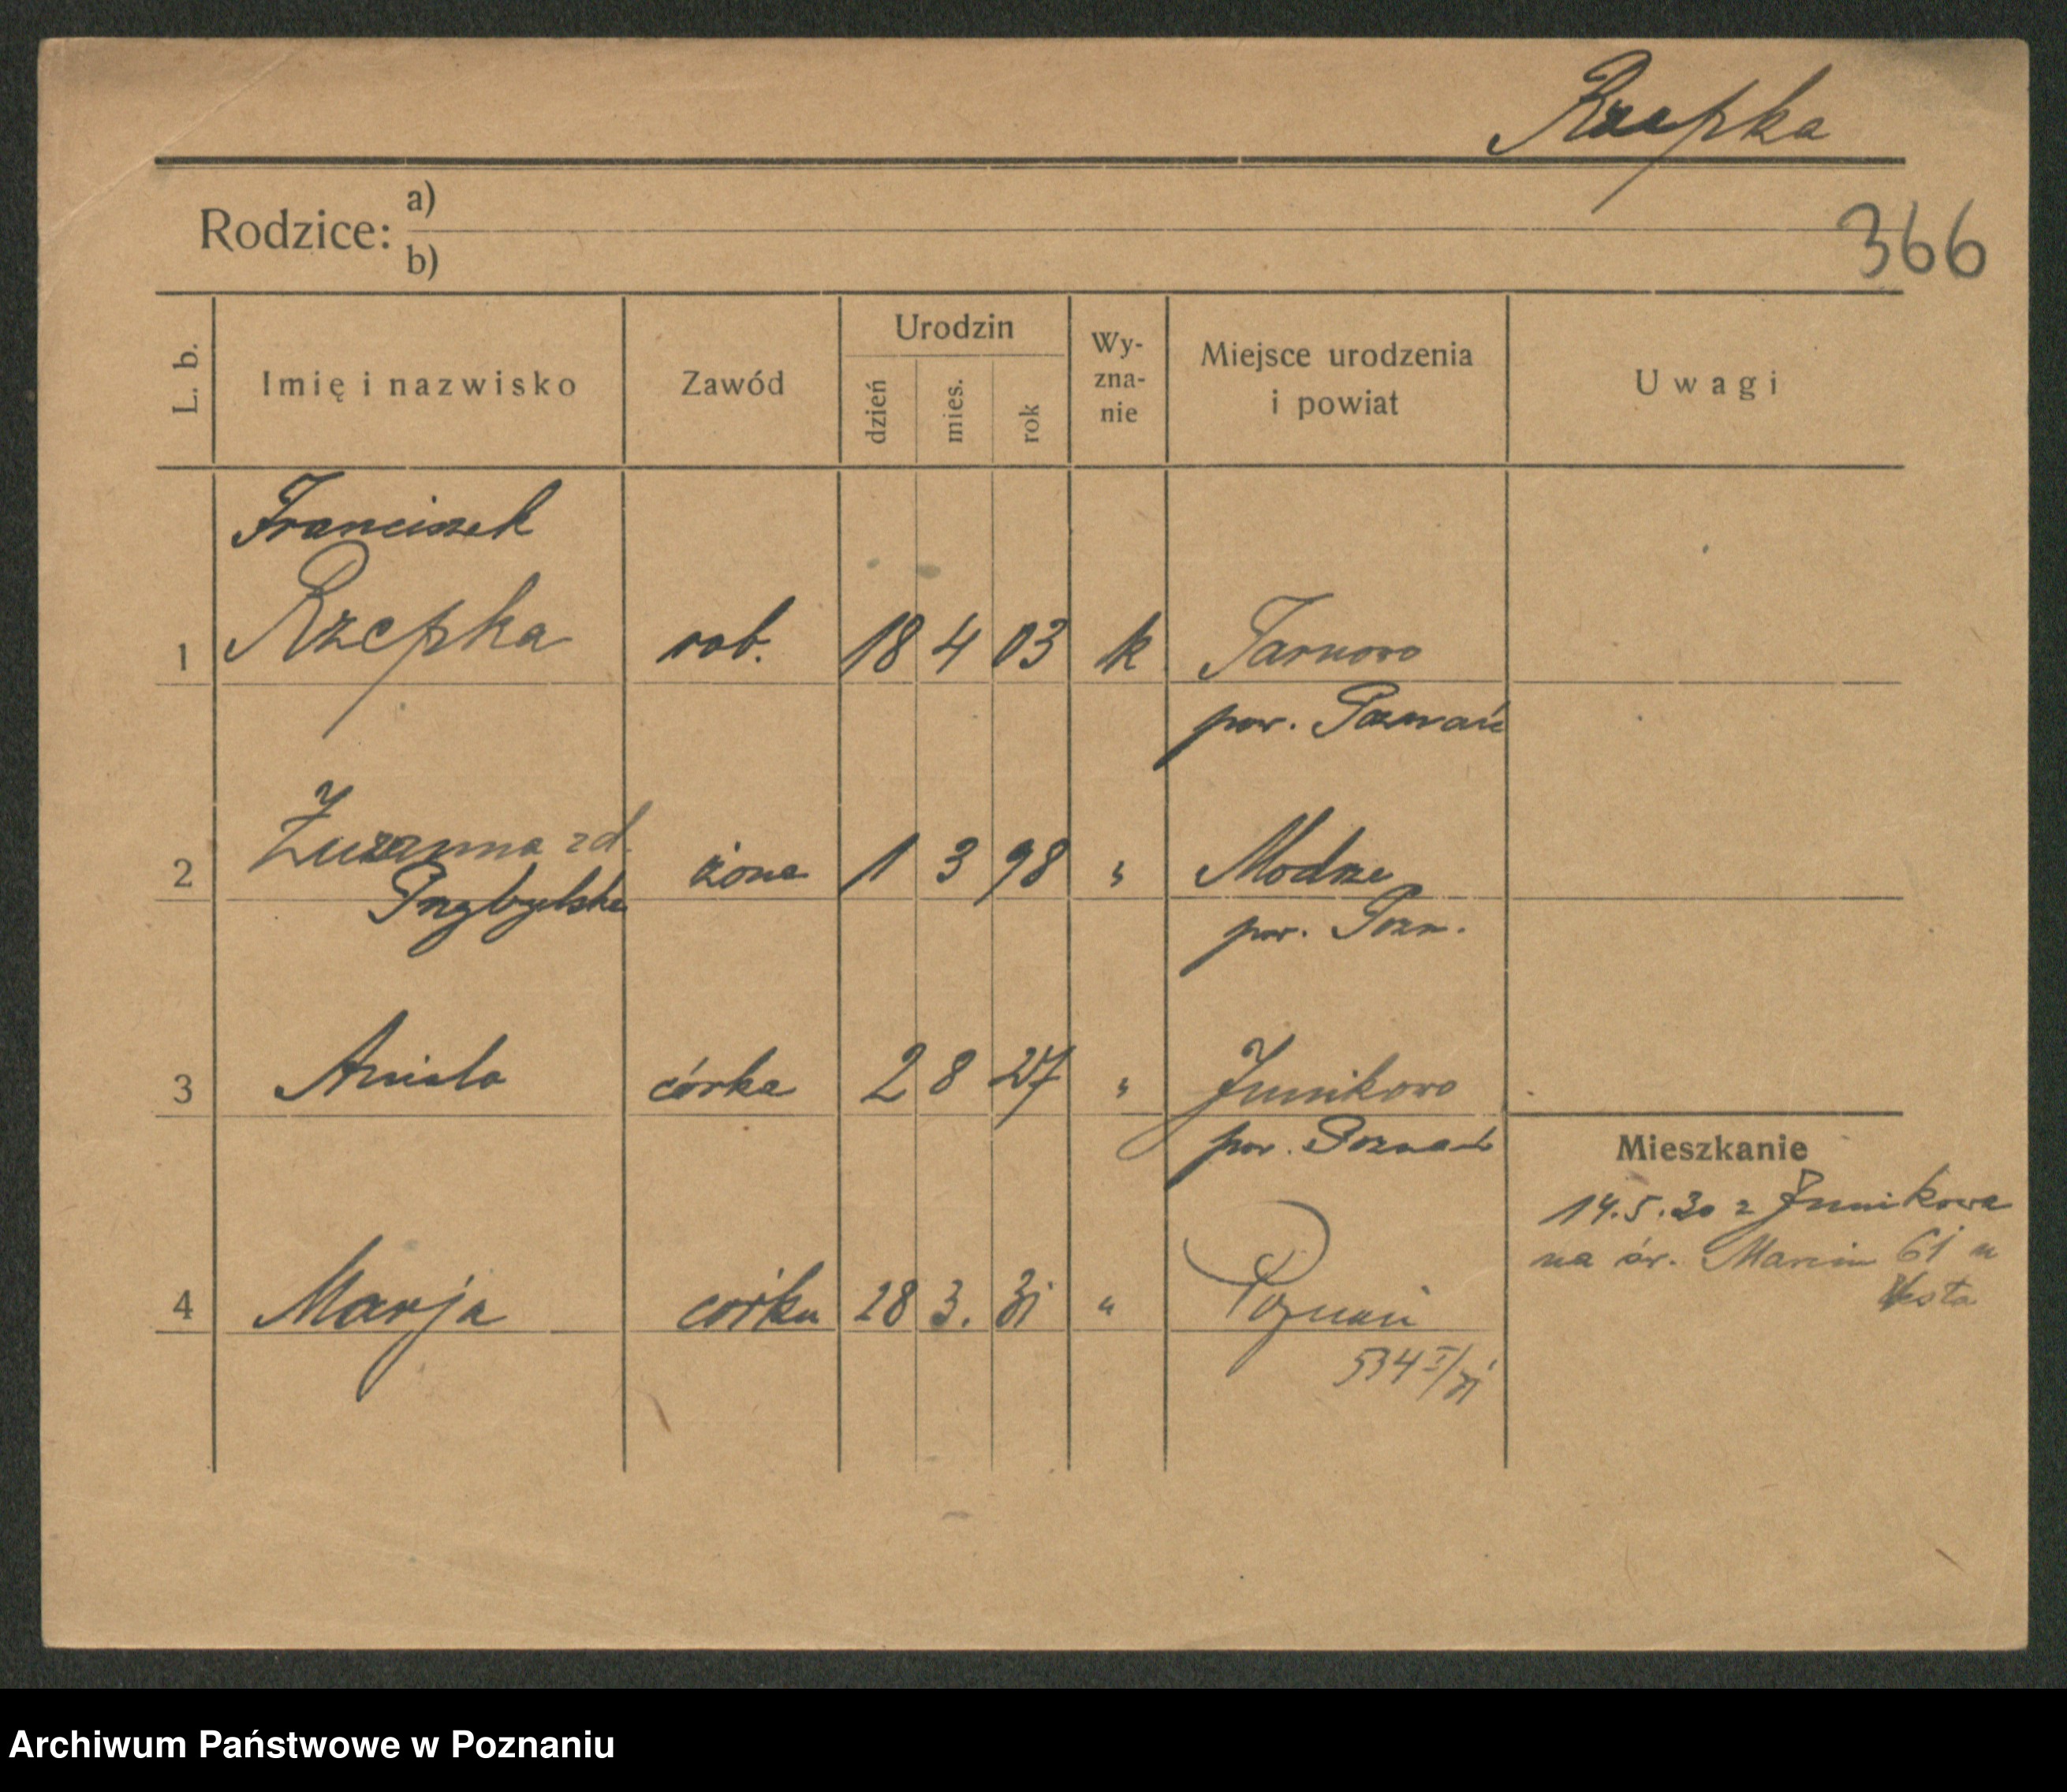 Rzepka
Rodzice: a)
b)
366
L. b. Imię i nazwisko Zawód Urodzin dzień mies. rok Wy-zna-nie Miejsce urodzenia i powiat Uwagi
Franciszek
1 Rzepka rob. 18 4 03 k Tarnowo
pow. Poznań
2 Zuzanna zd. żona 1 3 98 " Modrze
Przybylska pow. Pozn.
3 Aniela córka 2 8 27 " Junikowo
pow. Poznań
Mieszkanie
14.5.30 z Junikowa
na św. Marcin 61 m
4 Marja córka 28 3. 31 " Poznań
534 I/31
Archiwum Państwowe w Poznaniu